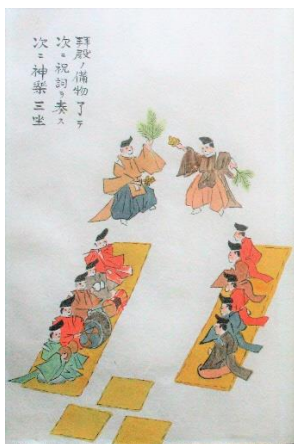 拝殿ノ備物了テ
次ニ祝詞ヲ奏ス
次ニ神楽三坐